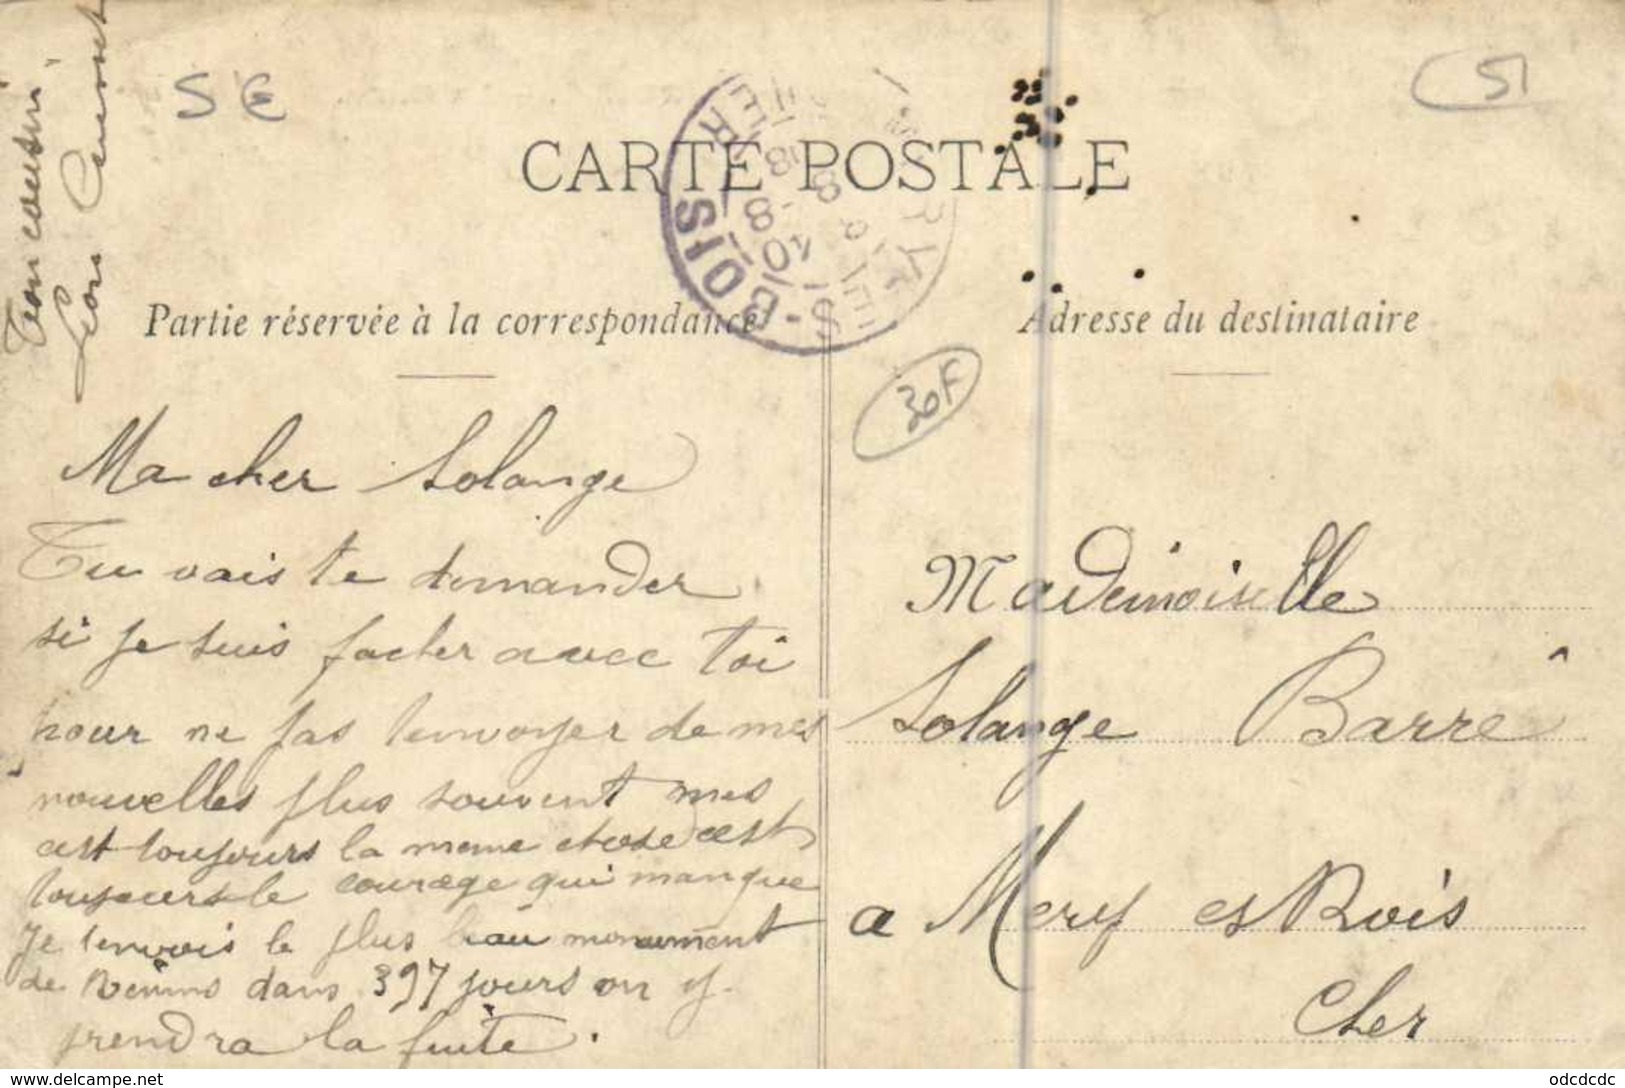 Ton cousin
5 E
51
CARTE POSTALE
S-BOIS
Partie réservée à la correspondance
Adresse du destinataire
30F
Ma cher Solange
Tu vais te demander
si je suis facher avec toi
pour ne pas t'envoyer de mes
nouvelles plus souvent mes
cest toujours la meme chose cest
toujours le courage qui manque
Je tenvois le plus beau monument
de Reims dans 397 jours on y
prendra la fuite.
Mademoiselle
Solange Barré
a Mery es Bois
Cher
delcampe.net
odcdcdc